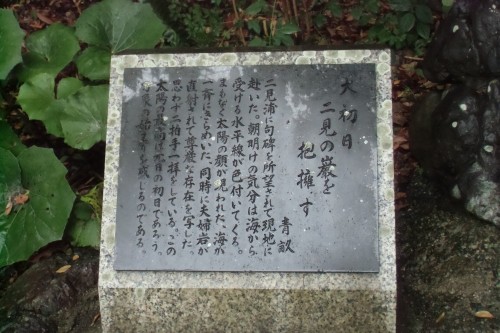 大初日
二見の巌を
抱擁す
青畝
二見浦に句碑を所望されて現地に
赴いた。朝明けの気分は海から
受ける水平線が色付いてくる。
まもなく太陽の額が見われた、海が
一斉にきらめいた。同時に夫婦岩が
直射されて尊厳な存在を写した。
思わず二拍手一拝をしている。この
太陽の最高は元日の初日であろう。
の始まりを感じるのである。